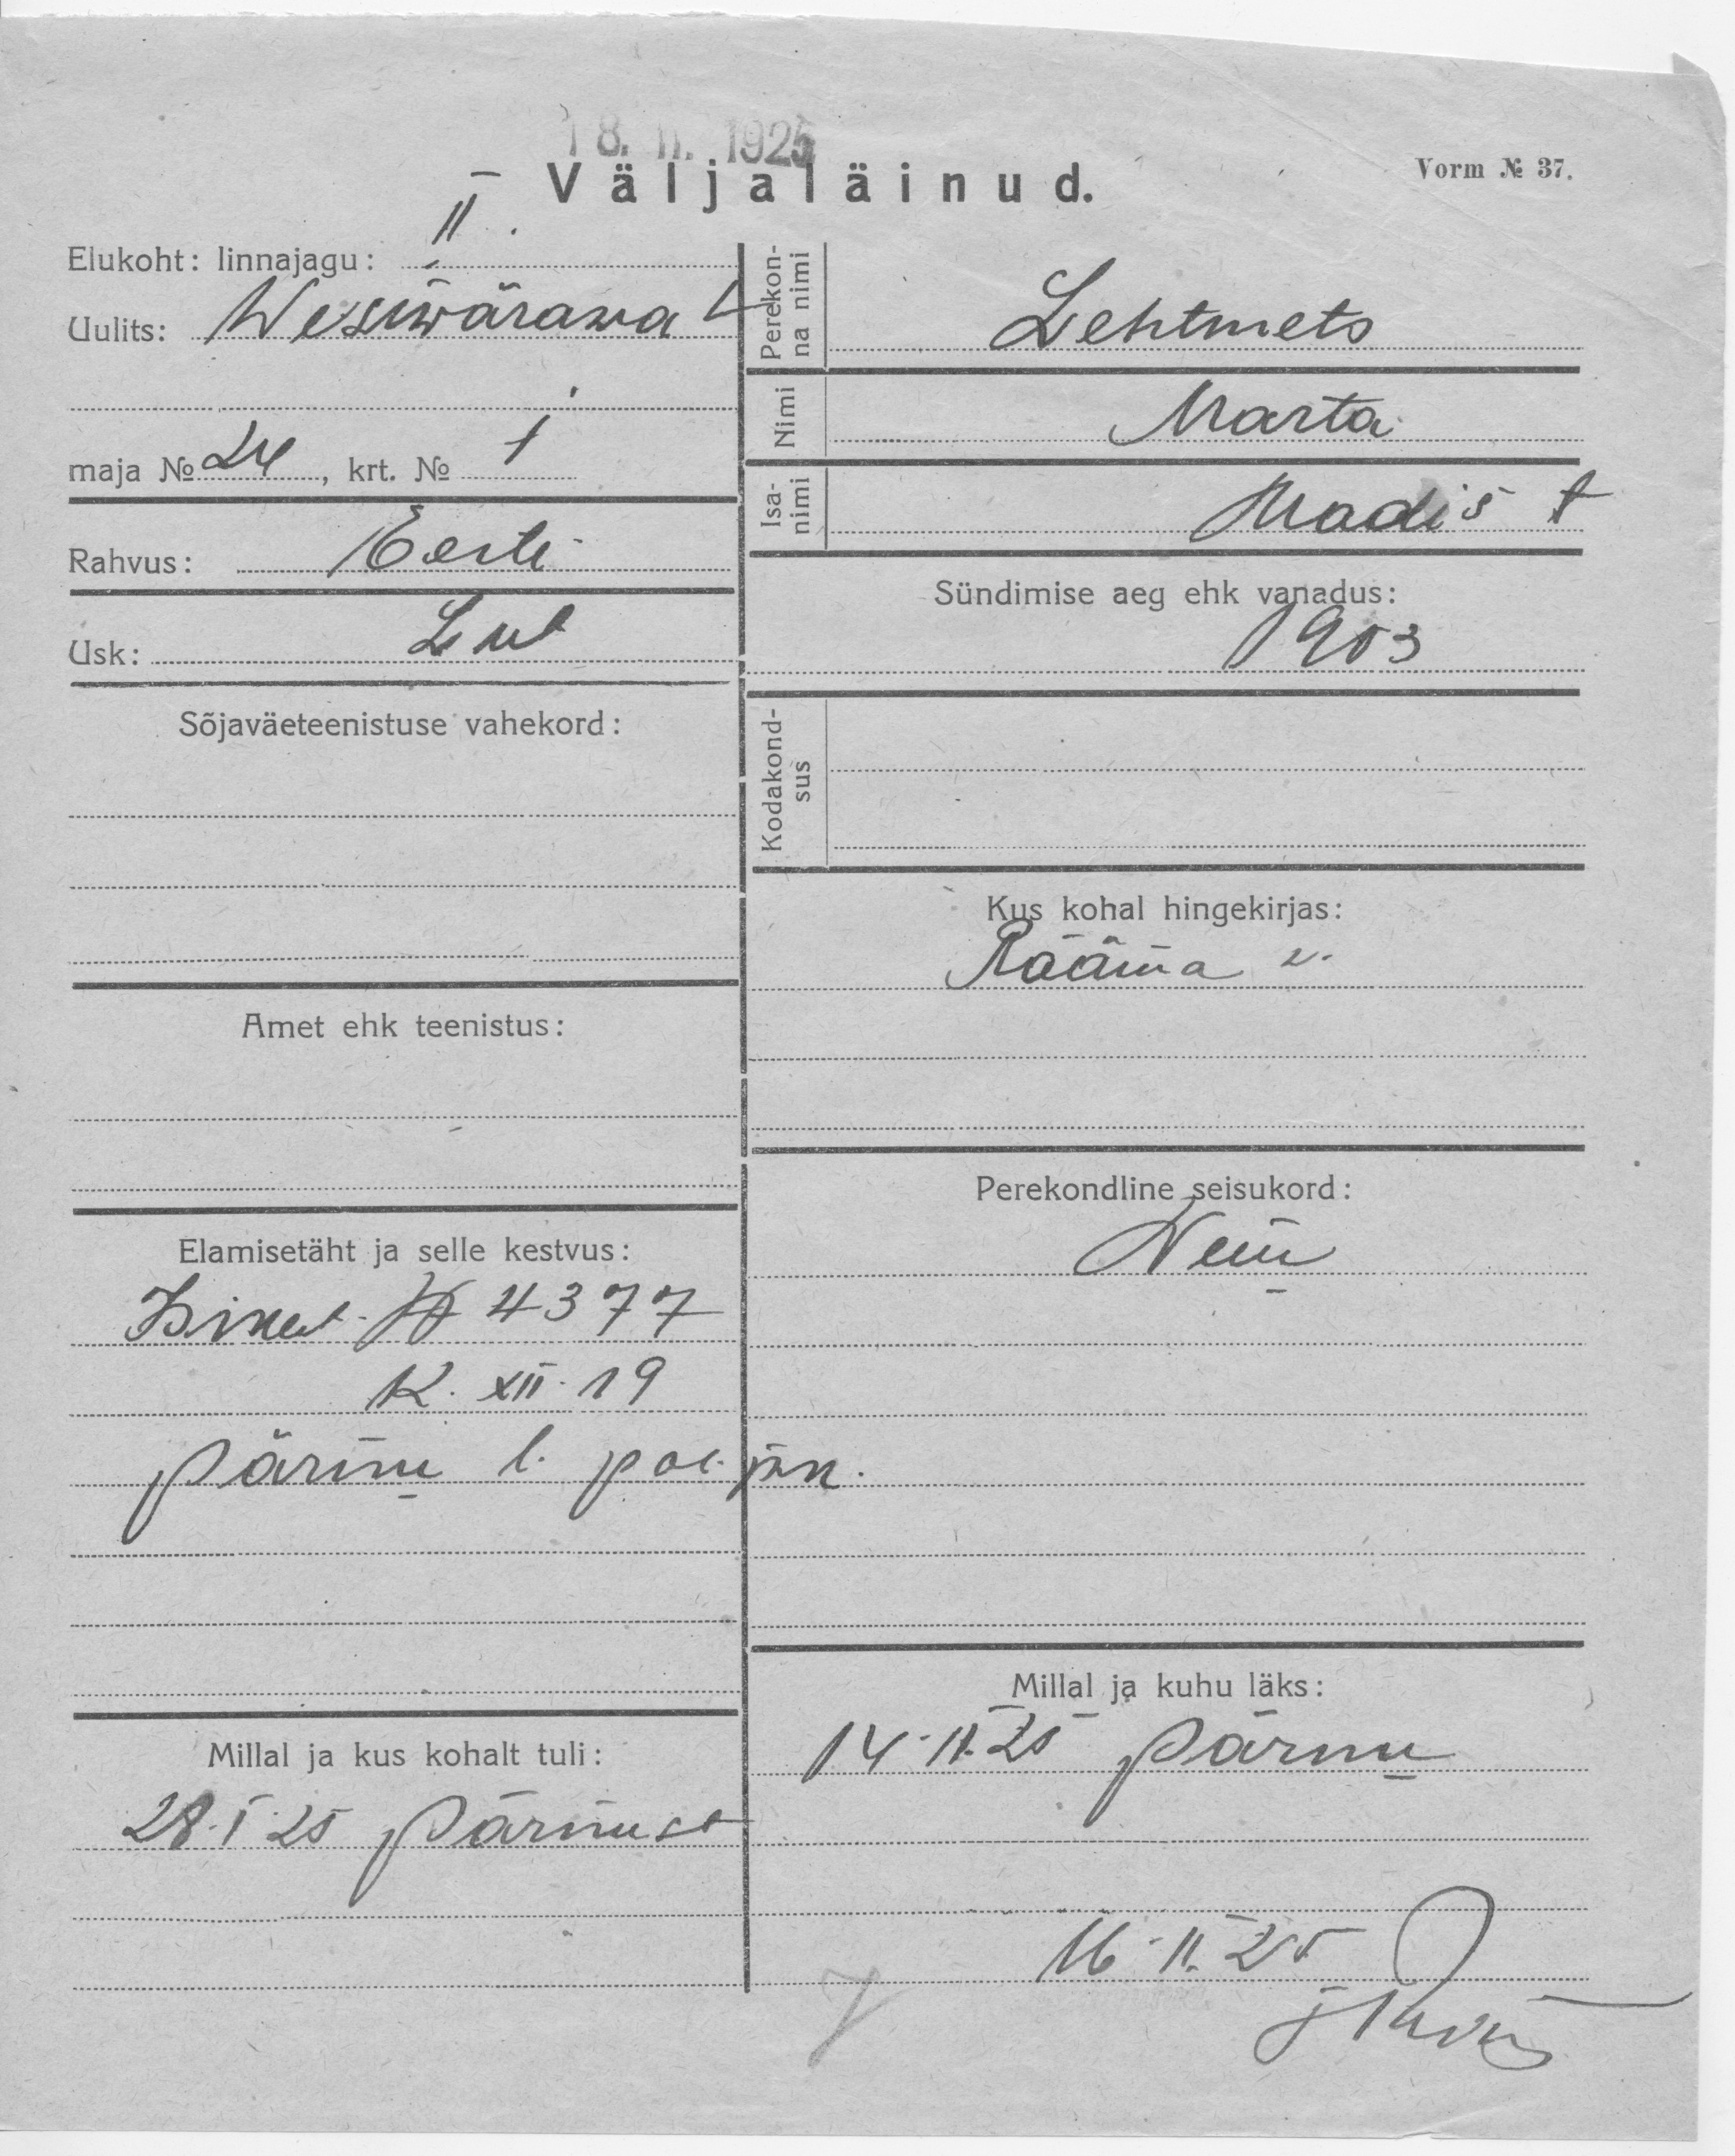 18. II. 1925
Väljaläinud.
Vorm № 37.
Elukoht: linnajagu: II
Uulits: Wesiwärawa
maja № 24, krt. № 1
Rahvus: Eesti
Usk: Lut
Sõjaväeteenistuse vahekord:
Amet ehk teenistus:
Elamisetäht ja selle kestvus:
№ 4377
12. XII. 19
Pärnu l. pol. jsk.
Millal ja kus kohalt tuli:
28. I 25 Pärnust
Perekonna nimi
Lehtmets
Nimi
Marta
Isanimi
Madis t
Sündimise aeg ehk vanadus:
1903
Kodakondsus
Kus kohal hingekirjas:
Rääma v.
Perekondline seisukord:
Neiu
Millal ja kuhu läks:
14. II. 25 Pärnu
16. II. 25